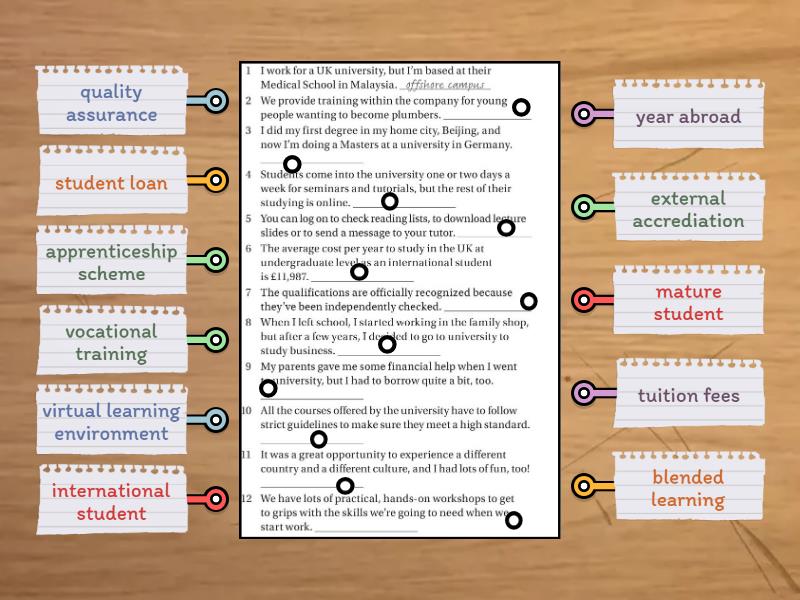 quality
assurance
student loan
apprenticeship
scheme
vocational
training
virtual learning
environment
international
student
1 I work for a UK university, but I'm based at their
Medical School in Malaysia. offshore campus
2 We provide training within the company for young
people wanting to become plumbers.
3 I did my first degree in my home city, Beijing, and
now I'm doing a Masters at a university in Germany.
4 Students come into the university one or two days a
week for seminars and tutorials, but the rest of their
studying is online.
5 You can log on to check reading lists, to download lecture
slides or to send a message to your tutor.
6 The average cost per year to study in the UK at
undergraduate level as an international student
is £11,987.
7 The qualifications are officially recognized because
they've been independently checked.
8 When I left school, I started working in the family shop,
but after a few years, I decided to go to university to
study business.
9 My parents gave me some financial help when I went
to university, but I had to borrow quite a bit, too.
10 All the courses offered by the university have to follow
strict guidelines to make sure they meet a high standard.
11 It was a great opportunity to experience a different
country and a different culture, and I had lots of fun, too!
12 We have lots of practical, hands-on workshops to get
to grips with the skills we're going to need when we
start work.
year abroad
external
accrediation
mature
student
tuition fees
blended
learning